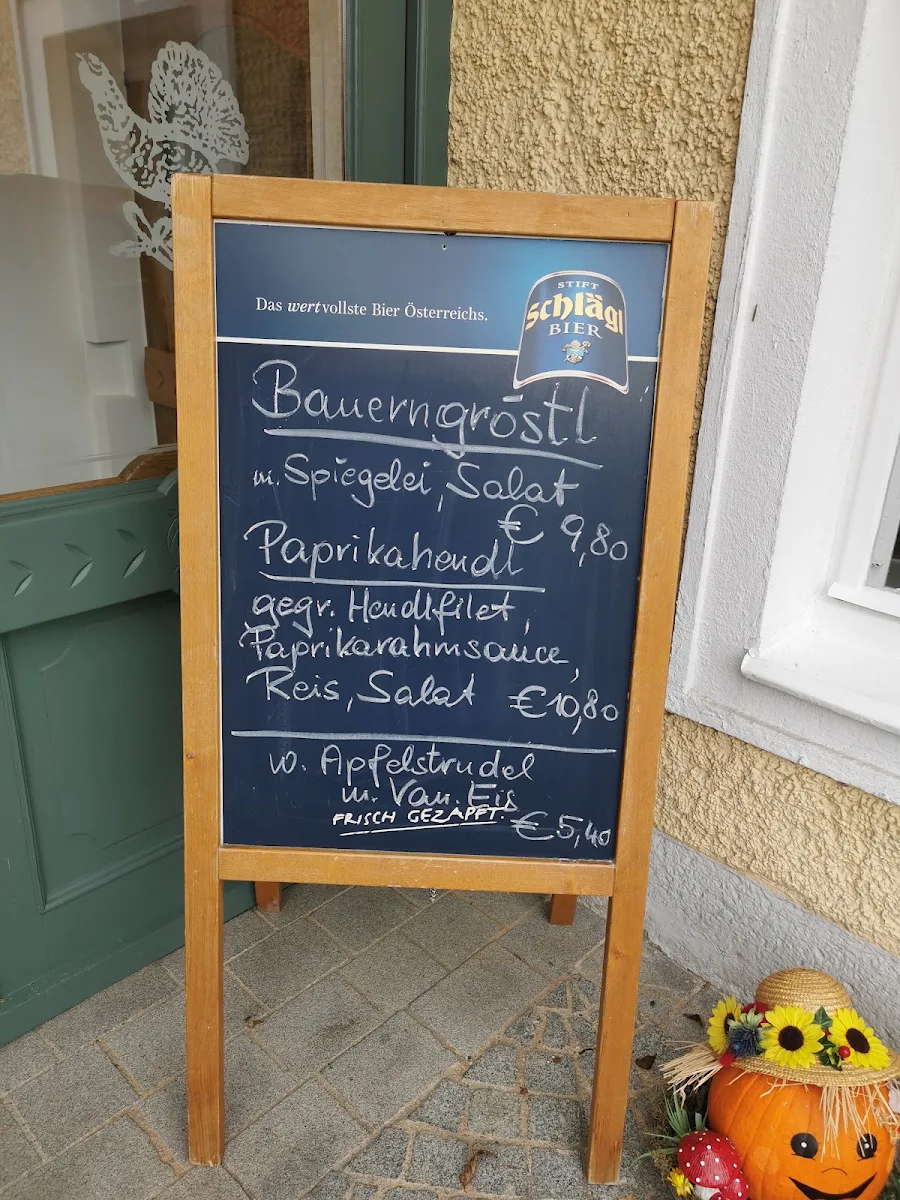 Das wertvollste Bier Österreichs.
STIFT
Schlägl
BIER
Bauerngröstl
m. Spiegelei, Salat
€ 9,80
Paprikahendl
gegr. Hendlfilet,
Paprikarahmsauce,
Reis, Salat €10,80
w. Apfelstrudel
m. Van. Eis
FRISCH GEZAPFT.
€5,40